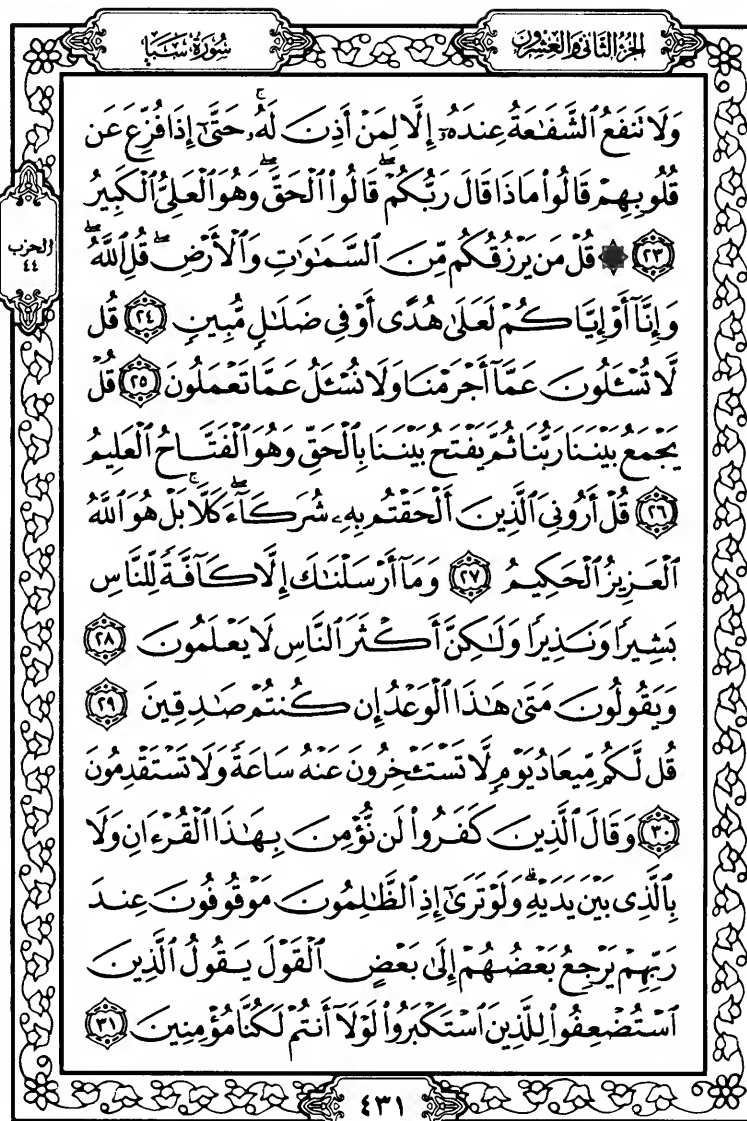 سُورَةُ سَبَإٍ
الجزء الثاني والعشرون
وَلَا تَنفَعُ ٱلشَّفَٰعَةُ عِندَهُۥٓ إِلَّا لِمَنْ أَذِنَ لَهُۥۚ حَتَّىٰٓ إِذَا فُزِّعَ عَن
قُلُوبِهِمْ قَالُوا۟ مَاذَا قَالَ رَبُّكُمْۖ قَالُوا۟ ٱلْحَقَّۖ وَهُوَ ٱلْعَلِىُّ ٱلْكَبِيرُ
٢٣ ۞ قُلْ مَن يَرْزُقُكُم مِّنَ ٱلسَّمَٰوَٰتِ وَٱلْأَرْضِۖ قُلِ ٱللَّهُۖ
الحزب
٤٤
وَإِنَّآ أَوْ إِيَّاكُمْ لَعَلَىٰ هُدًى أَوْ فِى ضَلَٰلٍ مُّبِينٍ ٢٤ قُل
لَّا تُسْـَٔلُونَ عَمَّآ أَجْرَمْنَا وَلَا نُسْـَٔلُ عَمَّا تَعْمَلُونَ ٢٥ قُلْ
يَجْمَعُ بَيْنَنَا رَبُّنَا ثُمَّ يَفْتَحُ بَيْنَنَا بِٱلْحَقِّ وَهُوَ ٱلْفَتَّاحُ ٱلْعَلِيمُ
٢٦ قُلْ أَرُونِىَ ٱلَّذِينَ أَلْحَقْتُم بِهِۦ شُرَكَآءَۖ كَلَّاۚ بَلْ هُوَ ٱللَّهُ
ٱلْعَزِيزُ ٱلْحَكِيمُ ٢٧ وَمَآ أَرْسَلْنَٰكَ إِلَّا كَآفَّةً لِّلنَّاسِ
بَشِيرًا وَنَذِيرًا وَلَٰكِنَّ أَكْثَرَ ٱلنَّاسِ لَا يَعْلَمُونَ ٢٨
وَيَقُولُونَ مَتَىٰ هَٰذَا ٱلْوَعْدُ إِن كُنتُمْ صَٰدِقِينَ ٢٩
قُل لَّكُم مِّيعَادُ يَوْمٍ لَّا تَسْتَـْٔخِرُونَ عَنْهُ سَاعَةً وَلَا تَسْتَقْدِمُونَ
٣٠ وَقَالَ ٱلَّذِينَ كَفَرُوا۟ لَن نُّؤْمِنَ بِهَٰذَا ٱلْقُرْءَانِ وَلَا
بِٱلَّذِى بَيْنَ يَدَيْهِۗ وَلَوْ تَرَىٰٓ إِذِ ٱلظَّٰلِمُونَ مَوْقُوفُونَ عِندَ
رَبِّهِمْ يَرْجِعُ بَعْضُهُمْ إِلَىٰ بَعْضٍ ٱلْقَوْلَ يَقُولُ ٱلَّذِينَ
ٱسْتُضْعِفُوا۟ لِلَّذِينَ ٱسْتَكْبَرُوا۟ لَوْلَآ أَنتُمْ لَكُنَّا مُؤْمِنِينَ ٣١
٤٣١